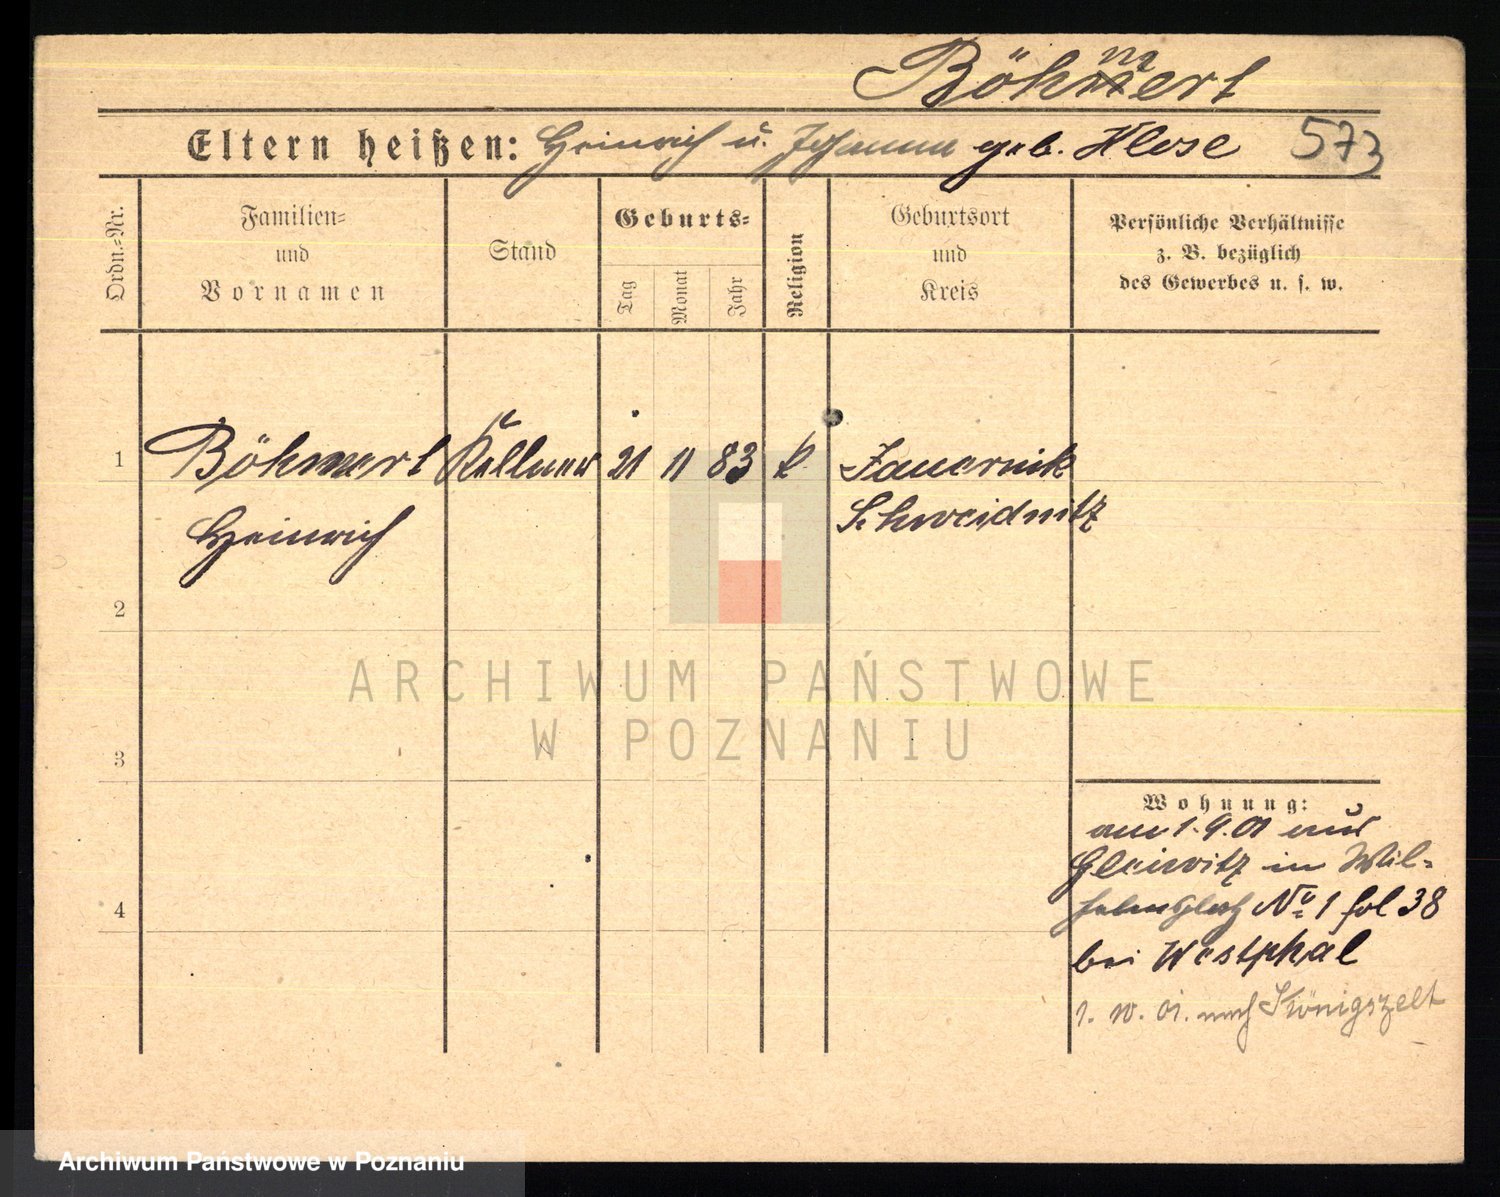 Böhmert
Eltern heißen: Heinrich u. Johanna geb. Klose 573
Ordn.=Nr.
Familien=
und
Vornamen
Stand
Geburts=
Tag
Monat
Jahr
Religion
Geburtsort
und
Kreis
Persönliche Verhältnisse
z. B. bezüglich
des Gewerbes u. s. w.
1 Böhmert Kellner 21 11 83 k. Jauernik
Heinrich Schweidnitz
2
3
4
Wohnung:
am 1.9.01 aus
Gleiwitz in Wil=
helmsplatz No 1 fol 38
bei Westphal
1. 10. 01. nach Königszelt
ARCHIWUM PAŃSTWOWE
W POZNANIU
Archiwum Państwowe w Poznaniu